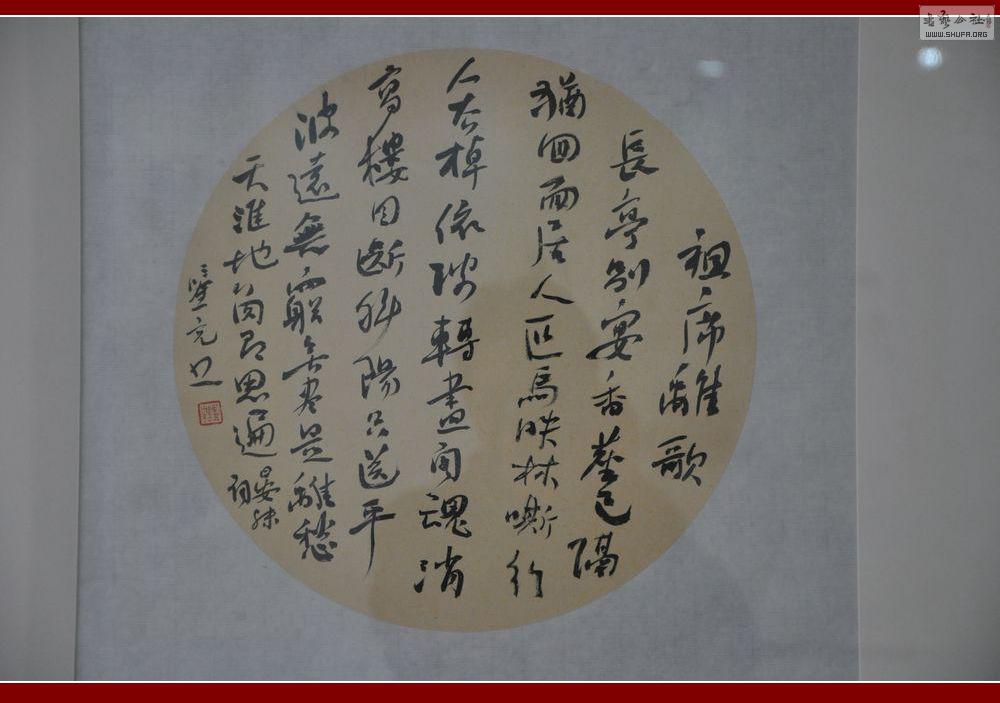 祖席離歌
長亭別宴香塵已隔
猶回面居人匹馬映林嘶行
人去棹依波轉畫閣魂消
高樓目斷斜陽只送平
波遠無窮無盡是離愁
天涯地角尋思遍晏殊詞
書藝公社
WWW.SHUFA.ORG